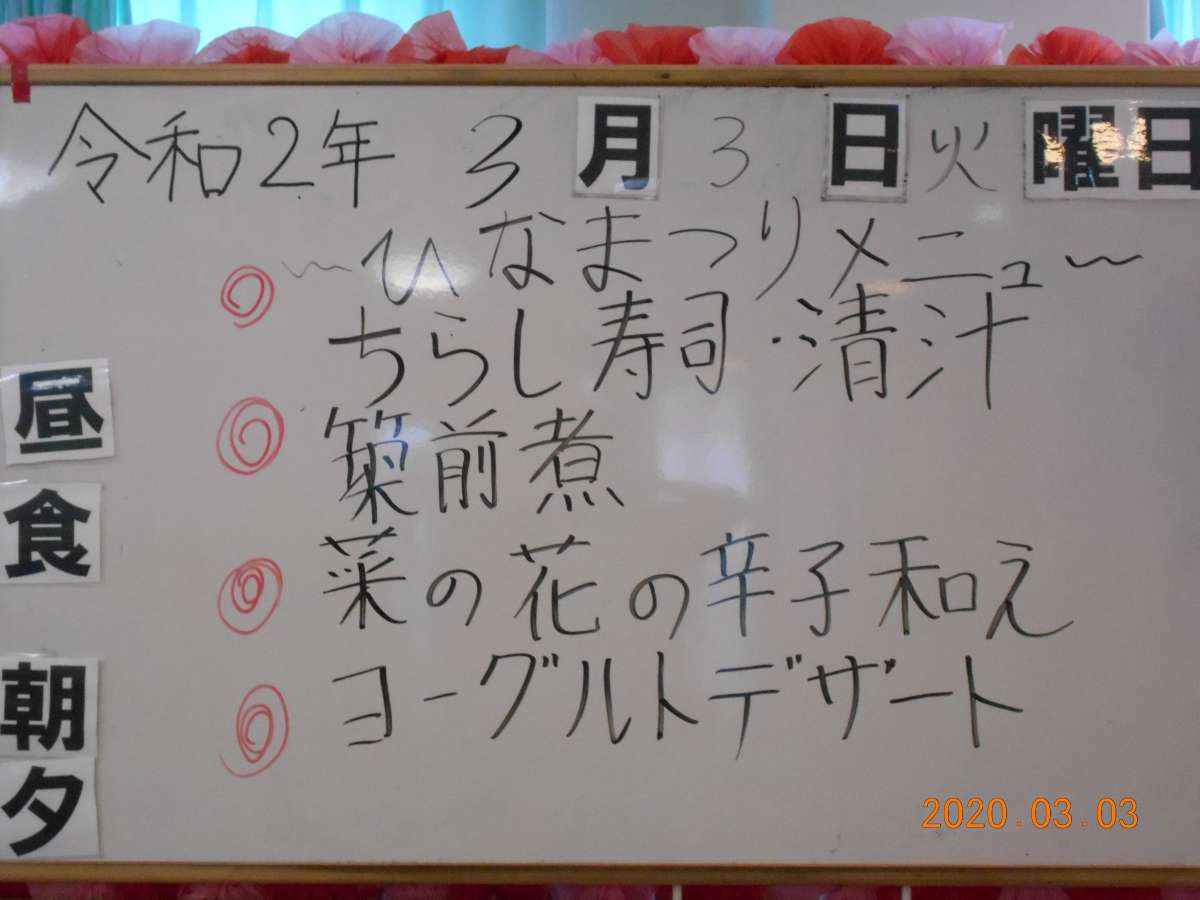 令和2年 3月3日火曜日
～ひなまつりメニュー～
ちらし寿司・清汁
築前煮
菜の花の辛子和え
ヨーグルトデザート
昼食
朝
夕
2020.03.03